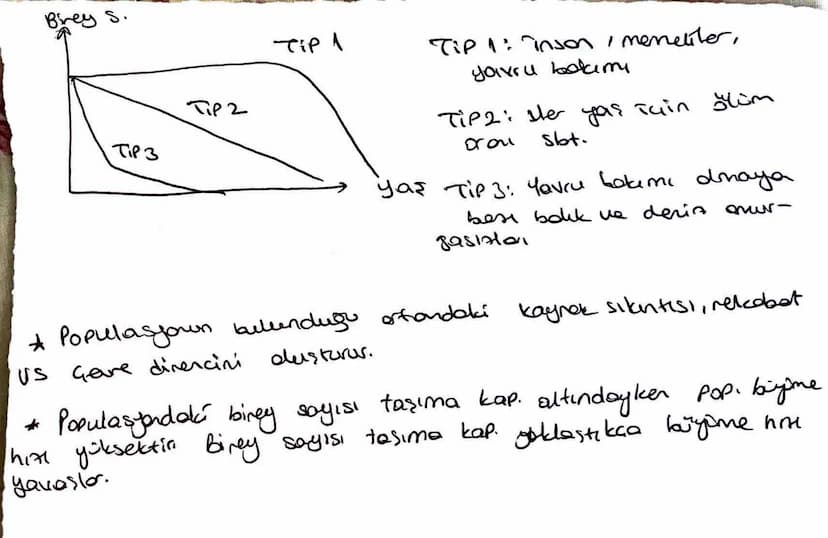 Birey S.
TİP 1
TİP 2
TİP 3
yaş
TİP 1: İnsan, memeliler,
yavru bakımı
TİP 2: Her yaş için ölüm
oranı sbt.
TİP 3: Yavru bakımı olmayan
bazı balık ve deniz omur-
gasızları
* Populasyonun bulunduğu ortamdaki kaynak sıkıntısı, rekabet
vs çevre direncini oluşturur.
* Populasyondaki birey sayısı taşıma kap. altındayken pop. büyüme
hızı yüksektir. Birey sayısı taşıma kap. yaklaştıkça büyüme hızı
yavaşlar.